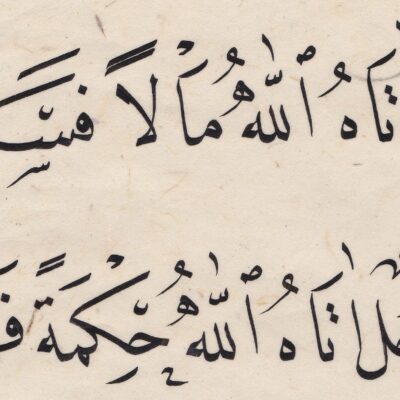 تَاهُ ٱللّٰهُ مَالًا فَسَ
لٌ اٰتَاهُ ٱللّٰهُ حِكْمَةً فَ